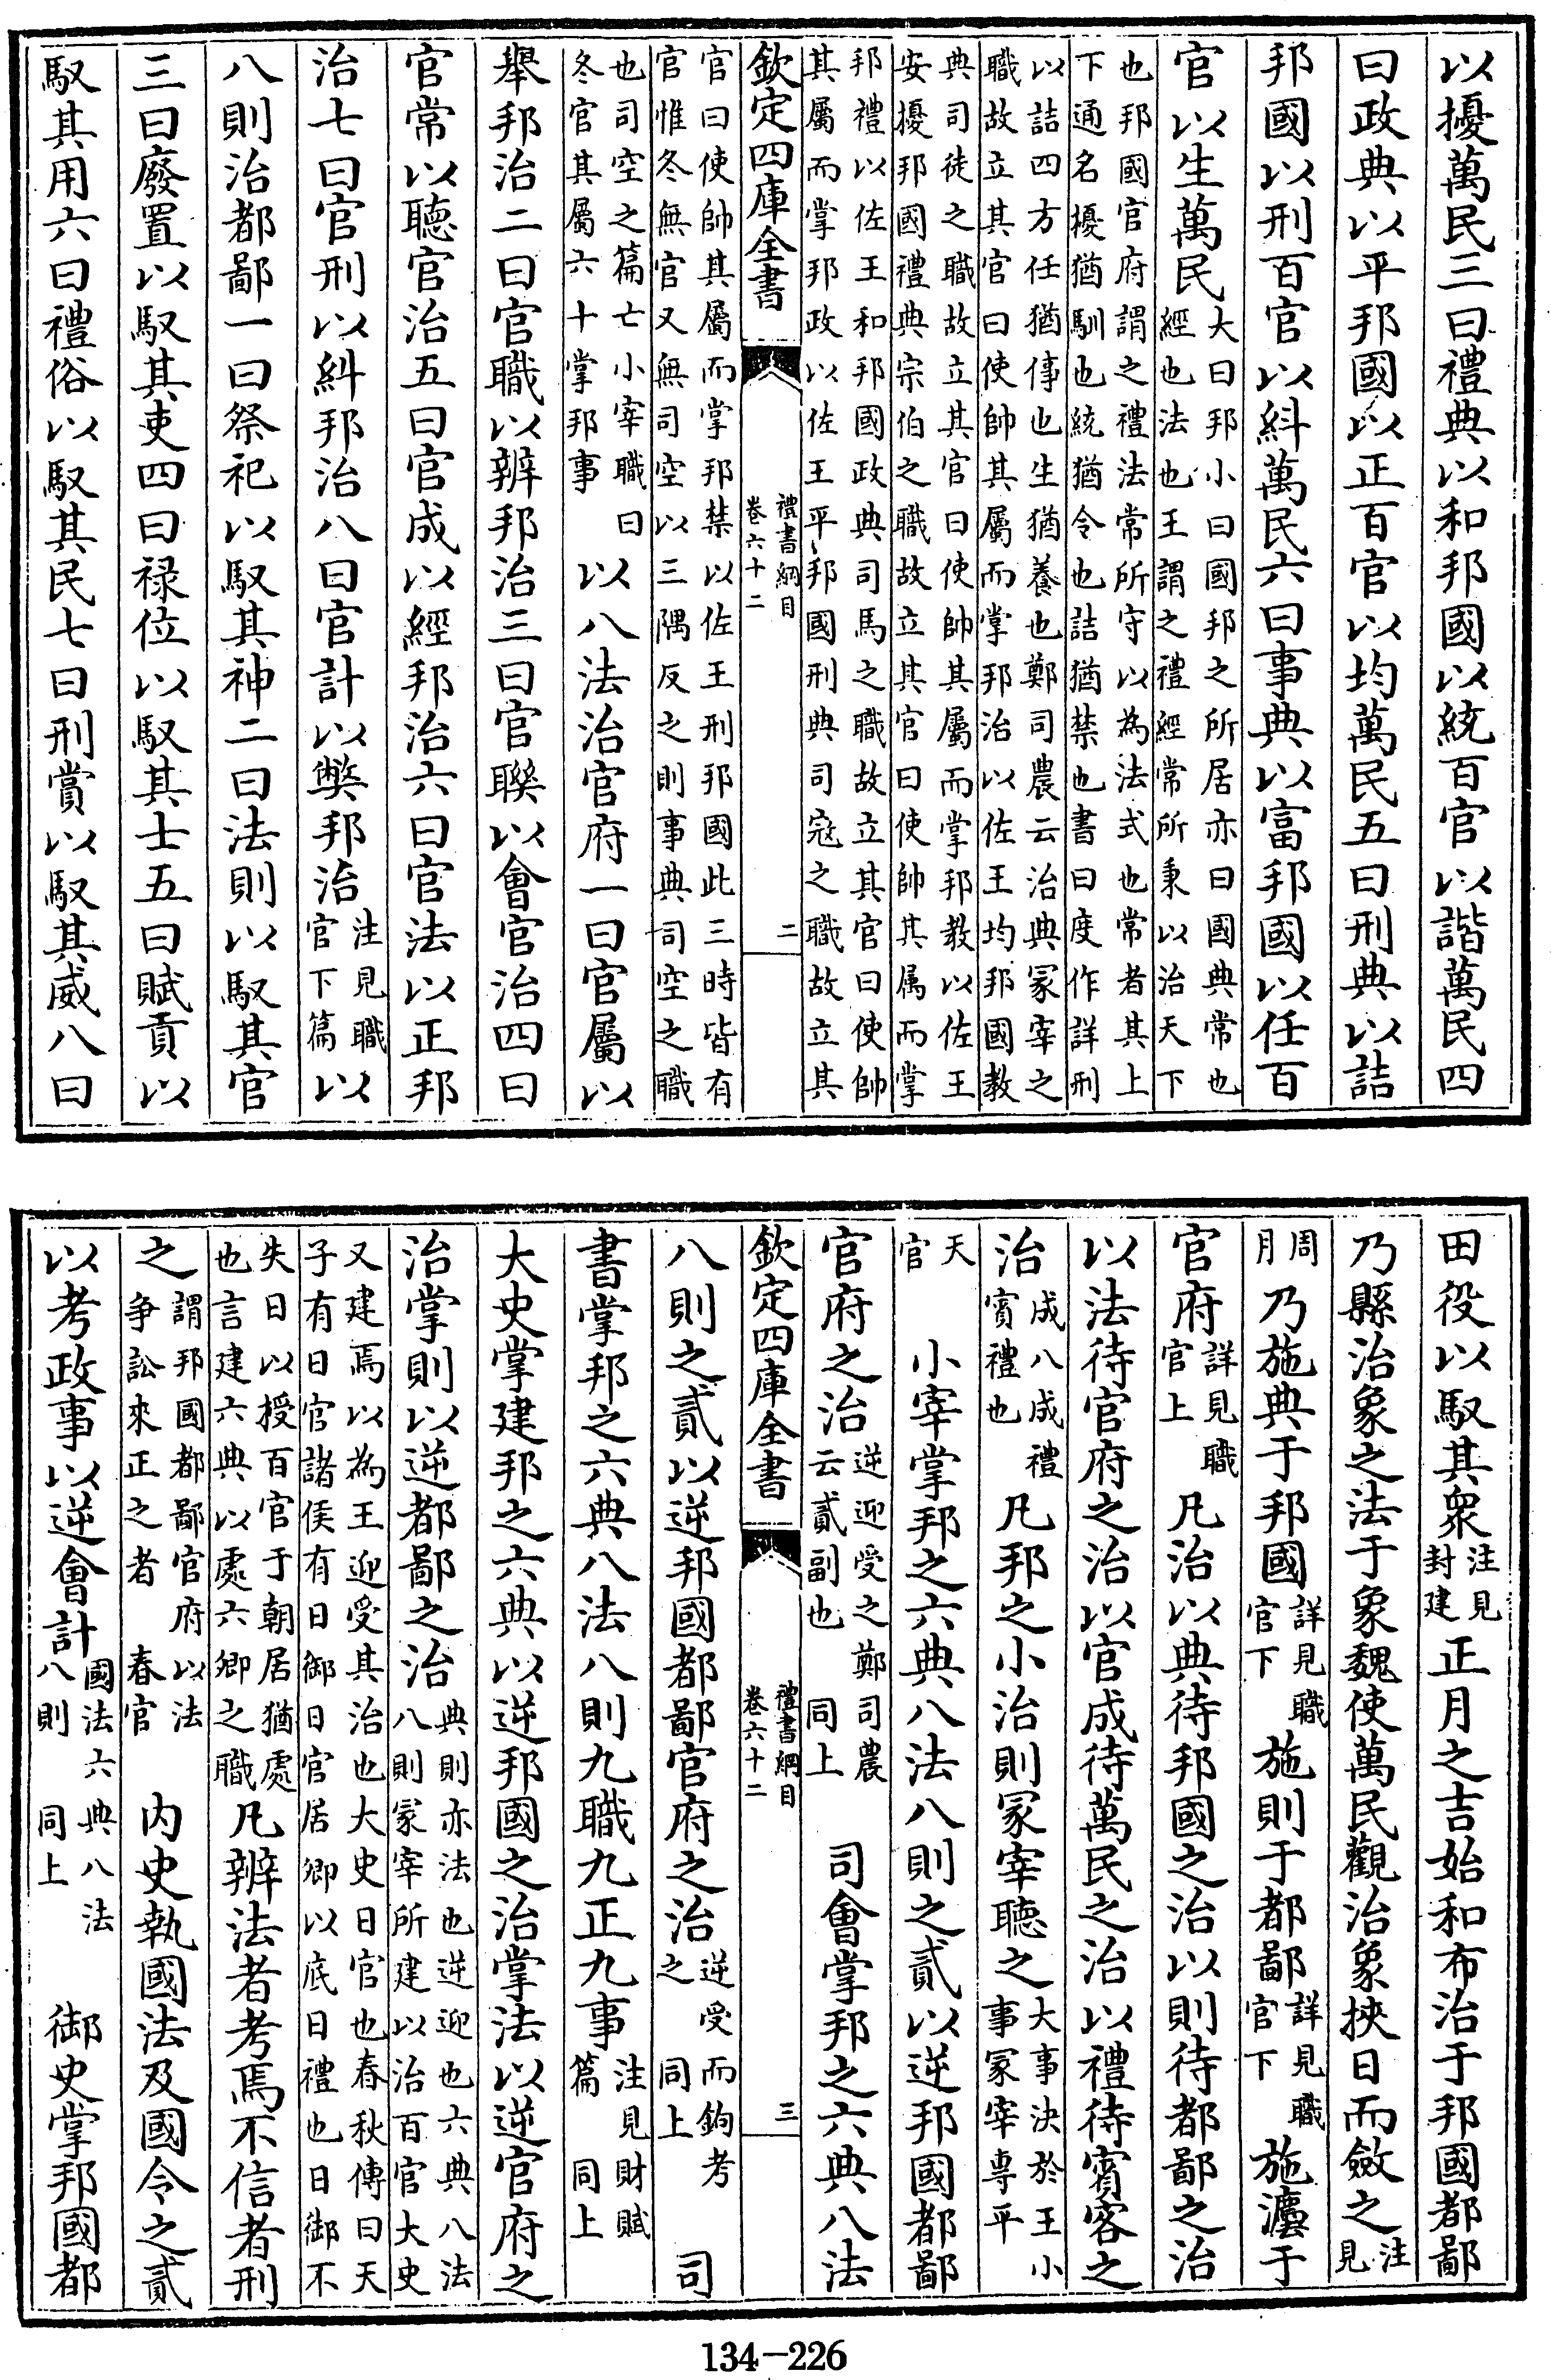 以擾萬民三曰禮典以和邦國以統百官以諧萬民四
曰政典以平邦國以正百官以均萬民五曰刑典以詰
邦國以刑百官以糾萬民六曰事典以富邦國以任百
官以生萬民大曰邦小曰國邦之所居亦曰國典常也經也法也王謂之禮經常所秉以治天下
也邦國官府謂之禮法常所守以為法式也常者其上下通名擾猶馴也統猶令也詰猶禁也書曰度作詳刑
以詰四方任猶倳也生猶養也鄭司農云治典冢宰之職故立其官曰使帥其屬而掌邦治以佐王均邦國教
典司徒之職故立其官曰使帥其屬而掌邦教以佐王安擾邦國禮典宗伯之職故立其官曰使帥其属而掌
邦禮以佐王和邦國政典司馬之職故立其官曰使帥其屬而掌邦政以佐王平邦國刑典司寇之職故立其
欽定四庫全書
禮書綱目
卷六十二
二
官曰使帥其屬而掌邦禁以佐王刑邦國此三時皆有官惟冬無官又無司空以三隅反之則事典司空之職
也司空之篇亡小宰職曰冬官其屬六十掌邦事以八法治官府一曰官屬以
舉邦治二曰官職以辨邦治三曰官聯以會官治四曰
官常以聽官治五曰官成以經邦治六曰官法以正邦
治七曰官刑以糾邦治八曰官計以弊邦治注見職官下篇以
八則治都鄙一曰祭祀以馭其神二曰法則以馭其官
三曰廢置以馭其吏四曰禄位以馭其士五曰賦貢以
馭其用六曰禮俗以馭其民七曰刑賞以馭其威八曰
田役以馭其衆注見封建正月之吉始和布治于邦國都鄙
乃縣治象之法于象魏使萬民觀治象挾日而斂之注見
周月乃施典于邦國詳見職官下施則于都鄙詳見職官下施灋于
官府詳見職官上凡治以典待邦國之治以則待都鄙之治
以法待官府之治以官成待萬民之治以禮待賓客之
治成八成禮賓禮也凡邦之小治則冢宰聽之大事決於王小事冢宰專平
天官　小宰掌邦之六典八法八則之貳以逆邦國都鄙
官府之治逆迎受之鄭司農云貳副也　同上　司會掌邦之六典八法
欽定四庫全書
禮書綱目
卷六十二
三
八則之貳以逆邦國都鄙官府之治逆受而鉤考之　同上　司
書掌邦之六典八法八則九職九正九事注見財賦篇　同上
大史掌建邦之六典以逆邦國之治掌法以逆官府之
治掌則以逆都鄙之治典則亦法也逆迎也六典八法八則冢宰所建以治百官大史
又建焉以為王迎受其治也大史日官也春秋傳曰天子有日官諸侯有日御日官居卿以底日禮也日御不
失日以授百官于朝居猶處也言建六典以處六卿之職凡辨法者考焉不信者刑
之謂邦國都鄙官府以法争訟來正之者　春官　内史執國法及國令之貳
以考政事以逆會計國法六典八法八則　同上　御史掌邦國都
134-226